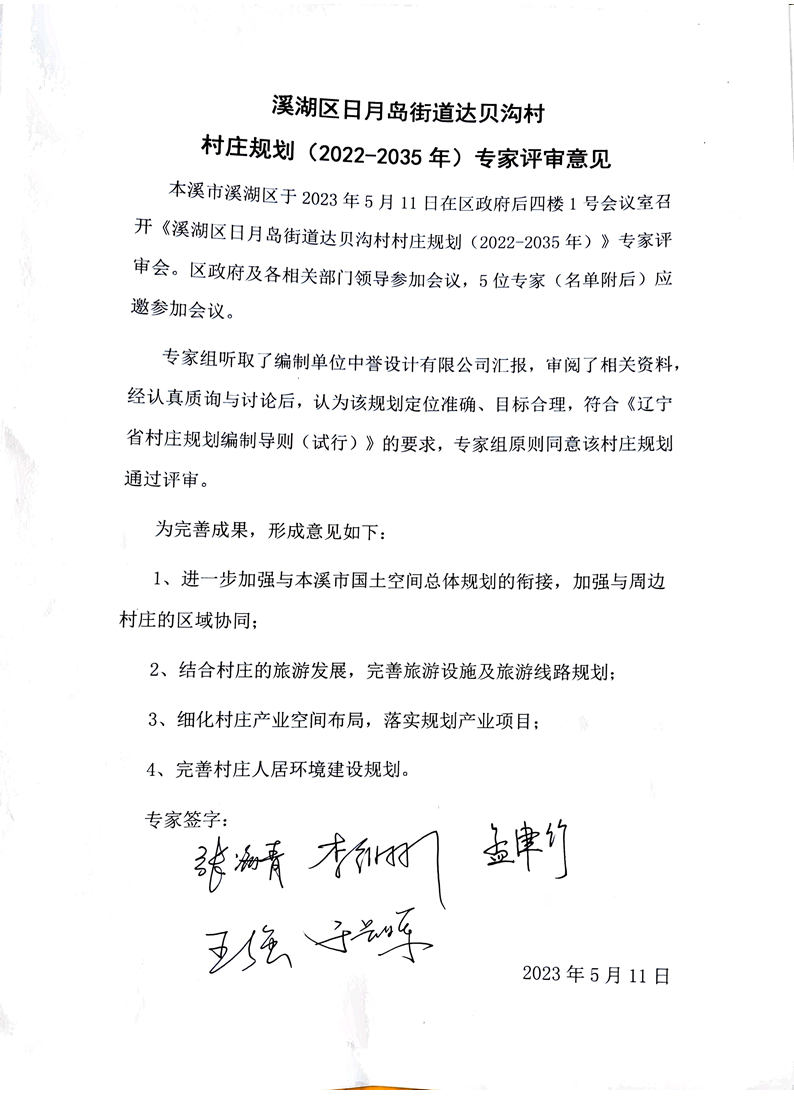 溪湖区日月岛街道达贝沟村
村庄规划（2022-2035 年）专家评审意见
本溪市溪湖区于 2023 年 5 月 11 日在区政府后四楼 1 号会议室召
开《溪湖区日月岛街道达贝沟村村庄规划（2022-2035 年）》专家评
审会。区政府及各相关部门领导参加会议，5 位专家（名单附后）应
邀参加会议。
专家组听取了编制单位中誉设计有限公司汇报，审阅了相关资料，
经认真质询与讨论后，认为该规划定位准确、目标合理，符合《辽宁
省村庄规划编制导则（试行）》的要求，专家组原则同意该村庄规划
通过评审。
为完善成果，形成意见如下：
1、进一步加强与本溪市国土空间总体规划的衔接，加强与周边
村庄的区域协同；
2、结合村庄的旅游发展，完善旅游设施及旅游线路规划；
3、细化村庄产业空间布局，落实规划产业项目；
4、完善村庄人居环境建设规划。
专家签字：
王强
2023 年 5 月 11 日